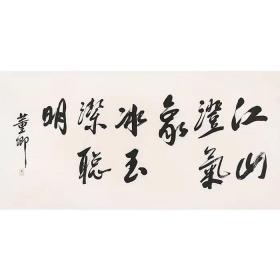 江山
澄氣
象
冰玉
潔聰
明
董卿